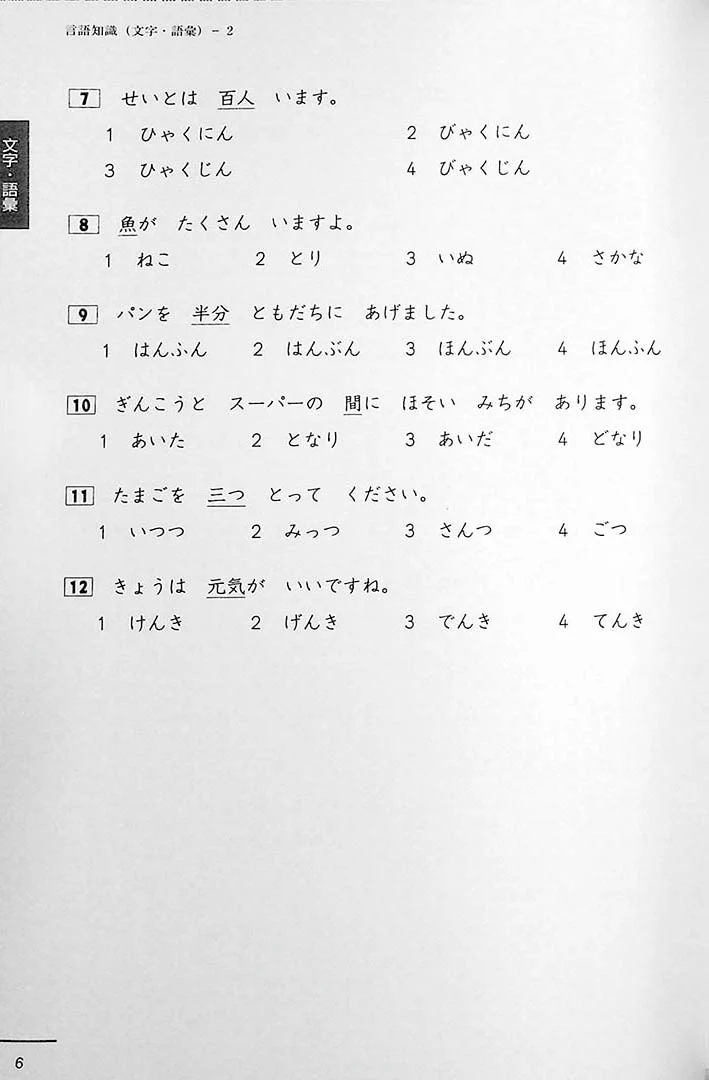 言語知識（文字・語彙）－2
文字・語彙
7 せいとは 百人 います。
1 ひゃくにん 2 びゃくにん
3 ひゃくじん 4 びゃくじん
8 魚が たくさん いますよ。
1 ねこ 2 とり 3 いぬ 4 さかな
9 パンを 半分 ともだちに あげました。
1 はんふん 2 はんぶん 3 ほんぶん 4 ほんふん
10 ぎんこうと スーパーの 間に ほそい みちが あります。
1 あいた 2 となり 3 あいだ 4 どなり
11 たまごを 三つ とって ください。
1 いつつ 2 みっつ 3 さんつ 4 ごつ
12 きょうは 元気が いいですね。
1 けんき 2 げんき 3 でんき 4 てんき
6